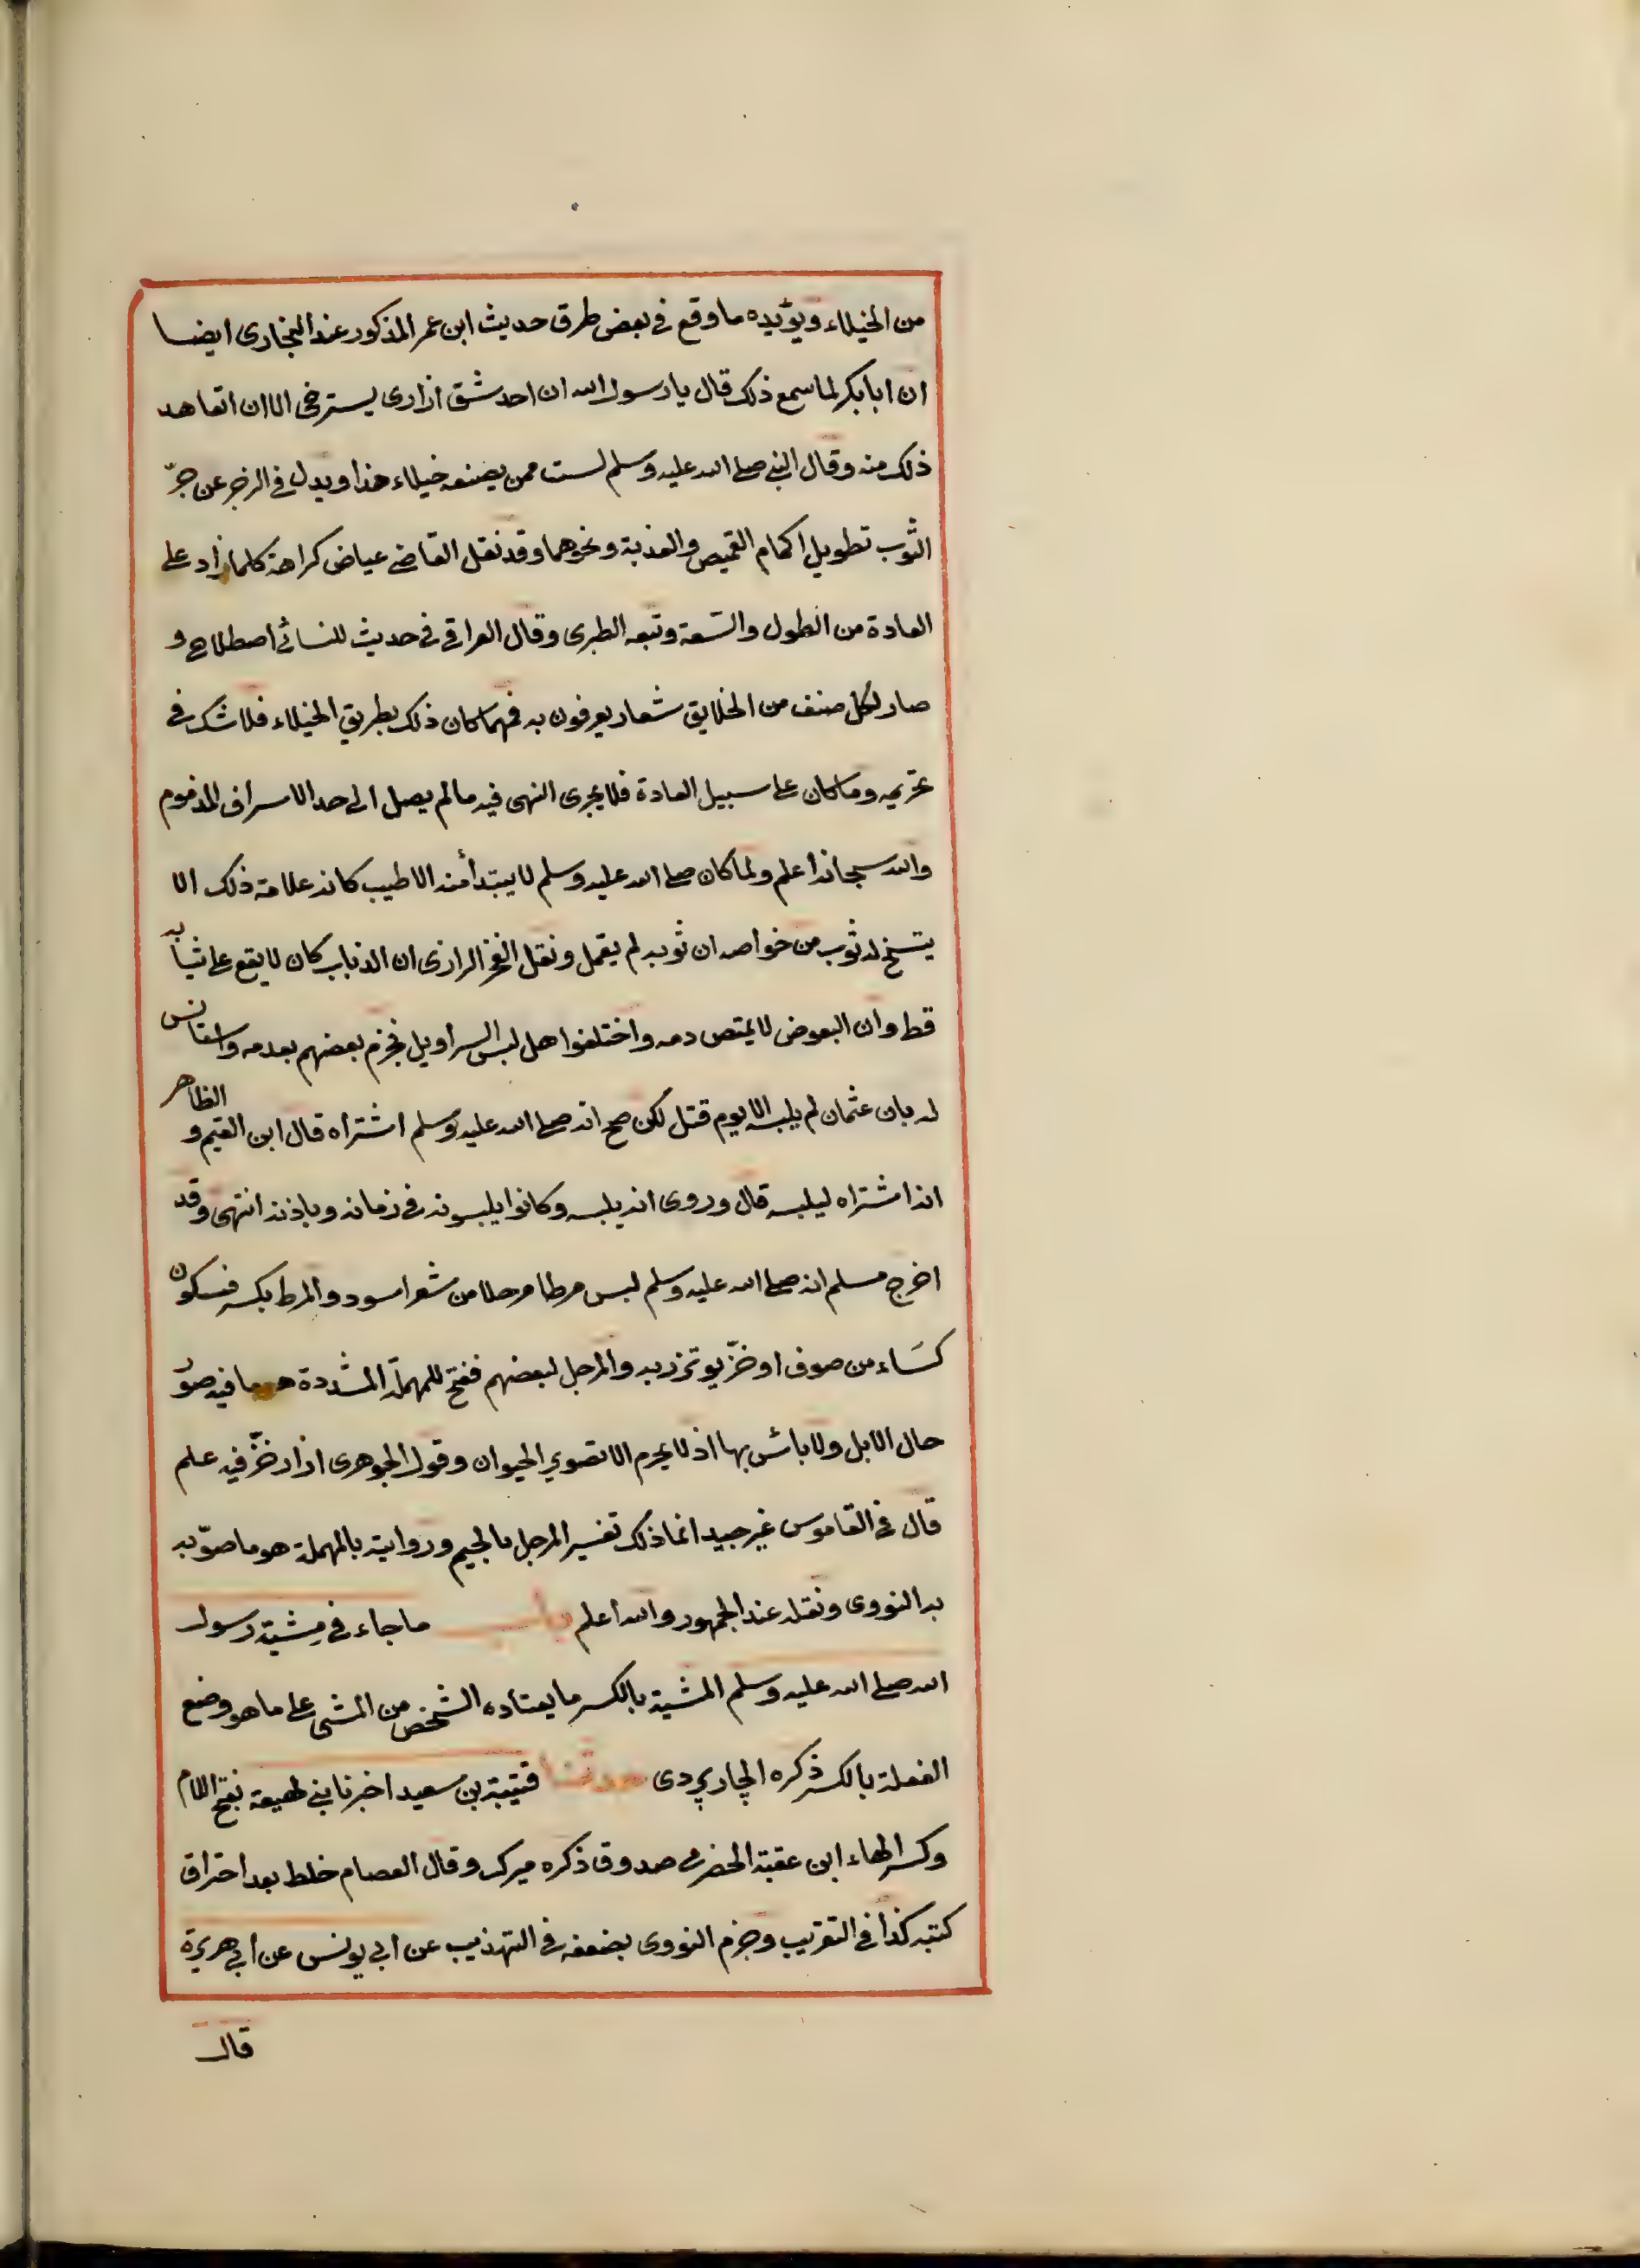 من الخيلاء ويؤيده ما وقع في بعض طرق حديث ابن عمر المذكور عند البخاري ايضا
ان ابا بكر لما سمع ذلك قال يا رسول الله ان احد شق ازاري يسترخي الا ان اتعاهد
ذلك منه وقال النبي صلى الله عليه وسلم لست ممن يصنعه خيلاء هذا ويدل في الزجر عن جرّ
الثوب تطويل اكمام القميص والعذبة ونحوهما وقد نقل القاضي عياض كراهة كلما زاد على
العادة من الطول والسّعة وتبعه الطبري وقال العراقي في حديث للنسائي اصطلاح و
صار لكل صنف من الخلايق شعار يعرفون به فمهما كان ذلك بطريق الخيلاء فلا شك في
تحريمه وما كان على سبيل العادة فلا يجرى النهى فيه ما لم يصل الى حد الاسراف المذموم
والله سبحانه اعلم ولما كان صلى الله عليه وسلم لا يبتدأ منه الا طيب كانه علامة ذلك الا
يتسخ له ثوب من خواصه ان ثوبه لم يقمل ونقل الفخر الرازى ان الذباب كان لا يقع على ثيابه
قط وان البعوض لا يمتص دمه واختلفوا هل لبس السراويل فجزم بعضهم بعدمه واستانس
له بان عثمان لم يلبسه الا يوم قتل لكن صح انه صلى الله عليه وسلم اشتراه قال ابن القيم و الظاهر
انه اشتراه ليلبسه قال وروى انه يلبسه وكانوا يلبسونه في زمانه وباذنه انتهى وقد
اخرج مسلم انه صلى الله عليه وسلم لبس مرطا مرحلا من شعر اسود والمرط بكسر فسكون
كسَاء من صوف او خزّ يوتزر به والمرحل لبعضهم ففتح للمهملة المشددة هو ما فيه صوَر
حال الابل ولا باس بها اذ لا يحرم الا تصوير الحيوان وقول الجوهرى ازار خزّ فيه علم
قال في القاموس غير جيد انما ذلك تفسير المرجل بالجيم ورواية بالمهملة هو ما صوّبه
به النووى ونقله عند الجمهور والله اعلم باب ما جاء في مِشية رسول
الله صلى الله عليه وسلم المشية بالكسر ما يعتاده الشخص من المشى على ما هو وضع
الفعلة بالكسر ذكره الچارپردى حدثنا قتيبة بن سعيد اخبرنا ابن لهيعة بفتح اللام
وكسر الهاء ابن عقبة الحضرمى صدوق ذكره ميرك وقال العصام خلط بعد احتراق
كتبه كذا في التقريب وجزم النووى بضعفه في التهذيب عن ابي يونس عن ابي هريرة
قال